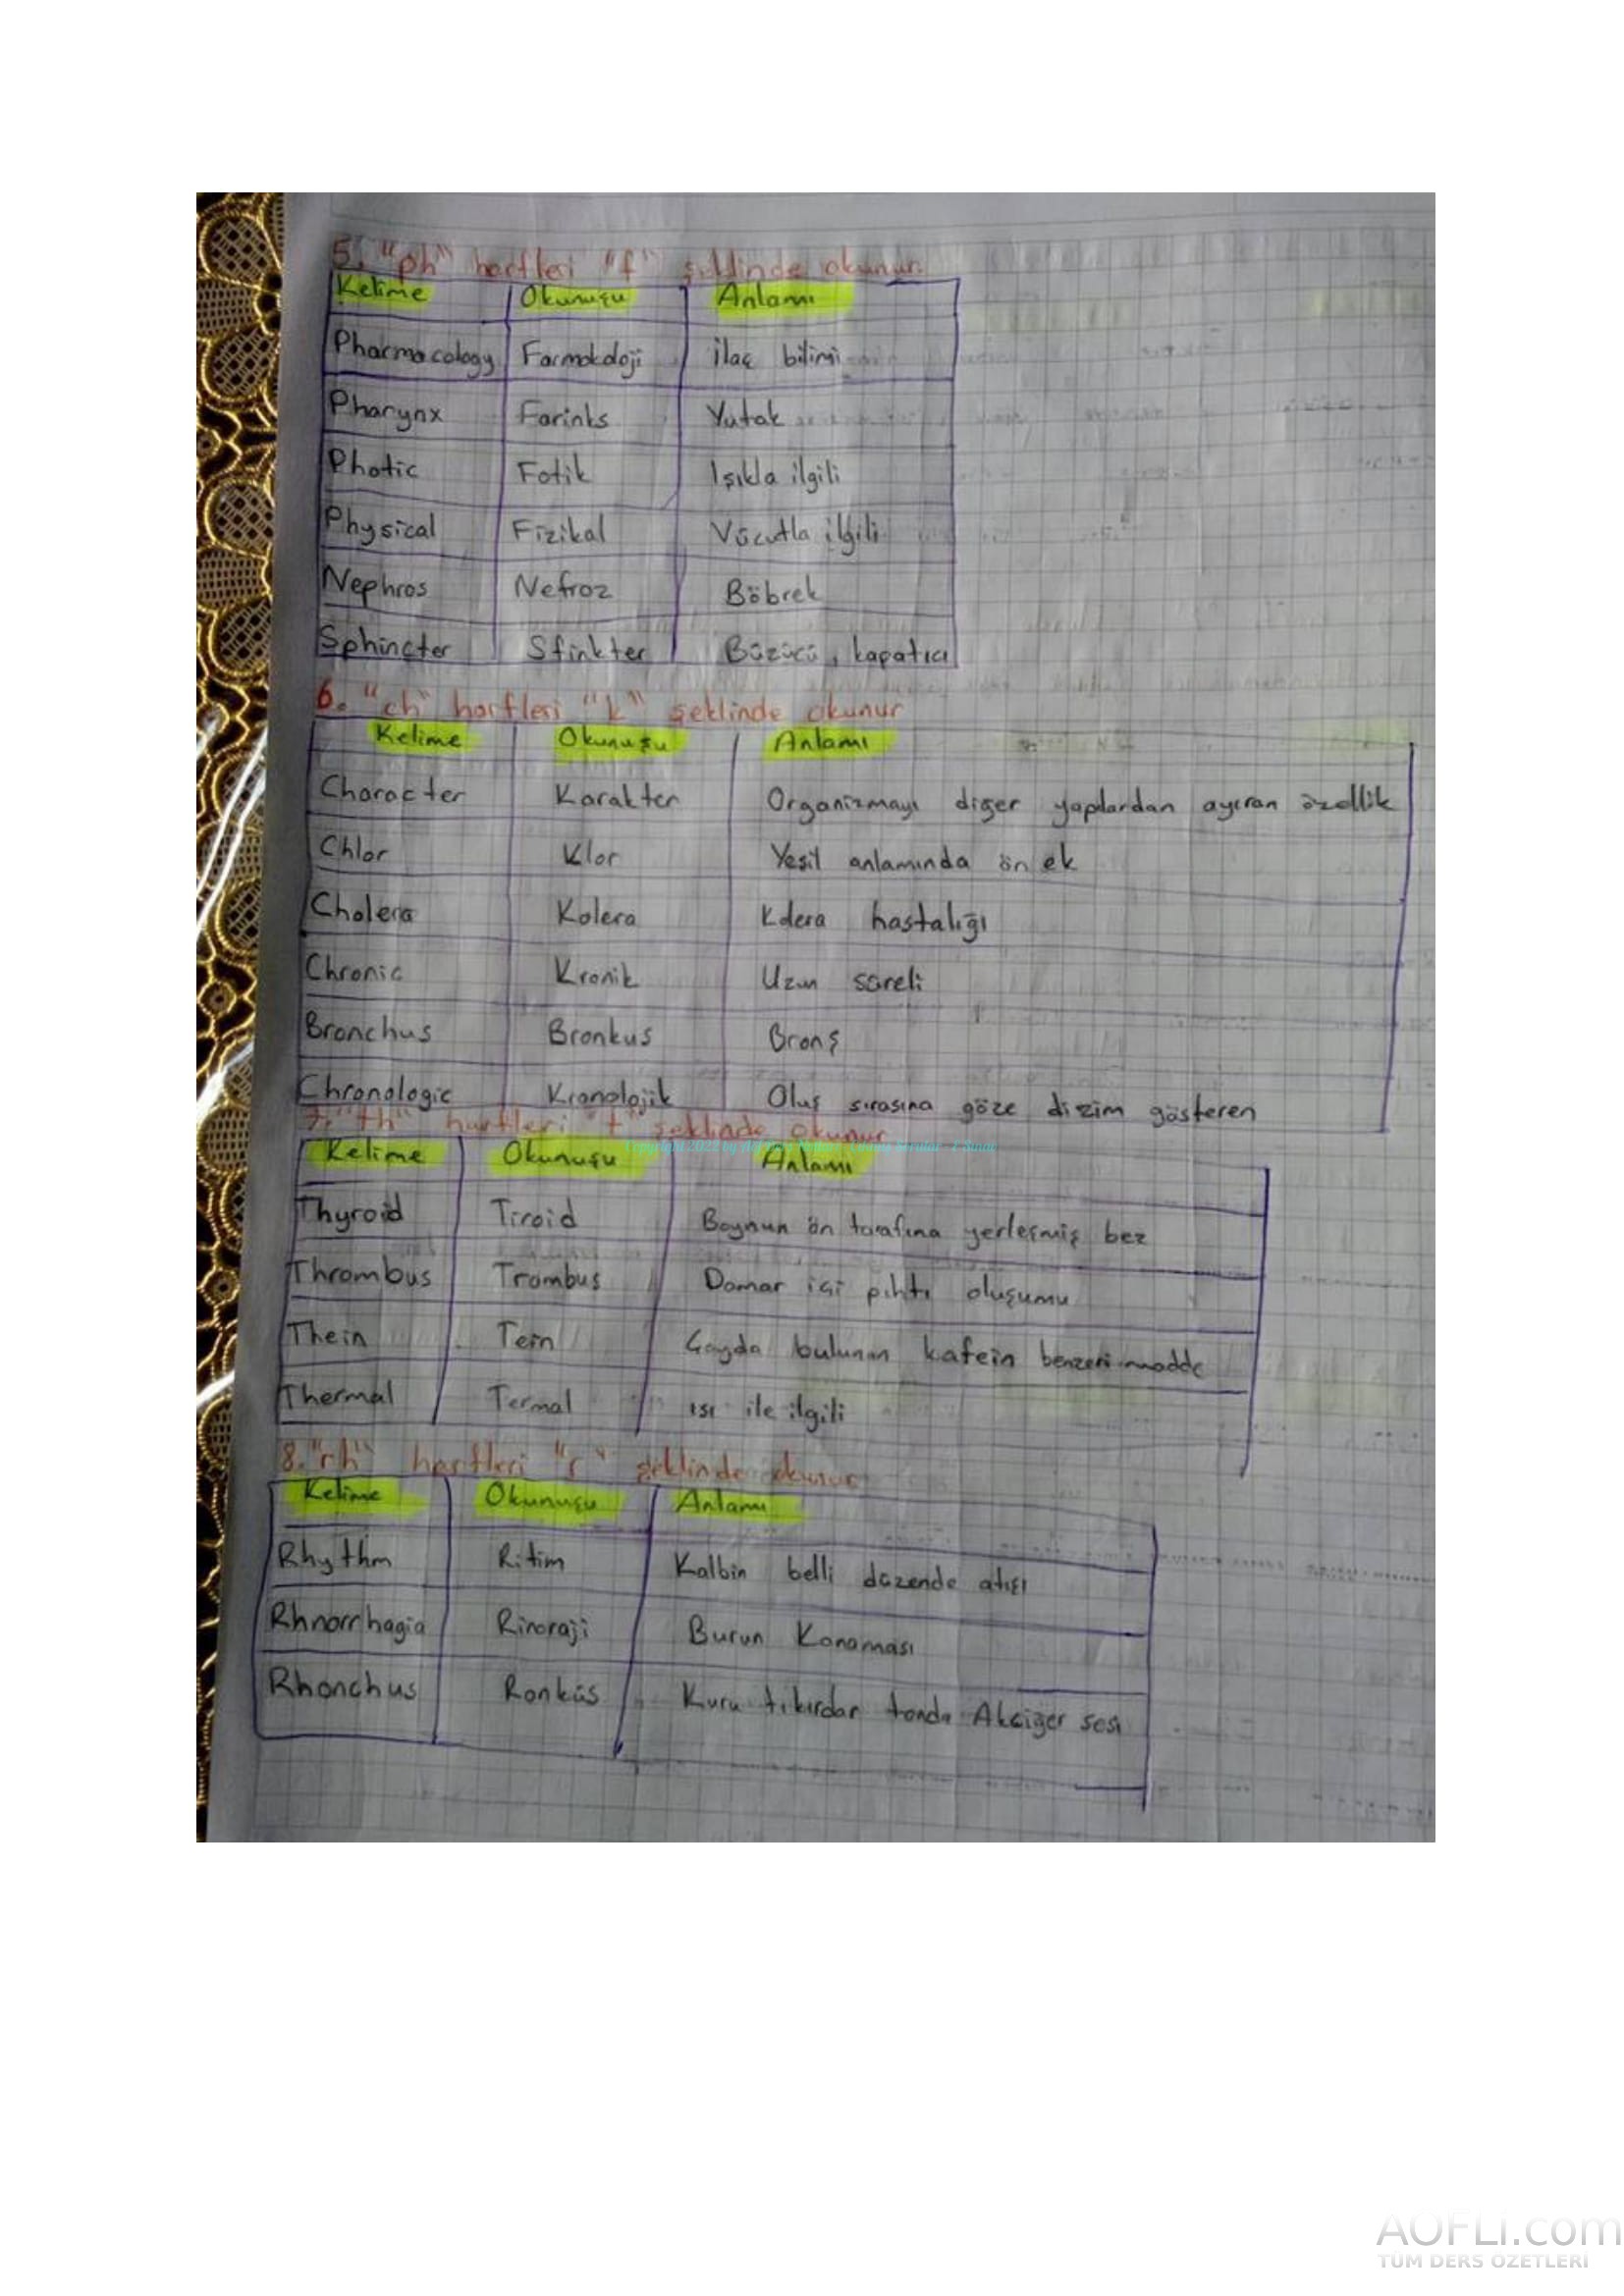 5. "ph" harfleri "f" şeklinde okunur.
Kelime Okunuşu Anlamı
Pharmacology Farmakoloji İlaç bilimi
Pharynx Farinks Yutak
Photic Fotik Işıkla ilgili
Physical Fizikal Vücutla ilgili
Nephros Nefroz Böbrek
Sphincter Sfinkter Büzücü, kapatıcı
6. "ch" harfleri "k" şeklinde okunur
Kelime Okunuşu Anlamı
Character Karakter Organizmayı diğer yapılardan ayıran özellik
Chlor Klor Yeşil anlamında ön ek
Cholera Kolera Kolera hastalığı
Chronic Kronik Uzun süreli
Bronchus Bronkus Bronş
Chronologic Kronolojik Oluş sırasına göze dizim gösteren
7. "th" harfleri "t" şeklinde okunur
Copyright 2022 by
Kelime Okunuşu Anlamı
Thyroid Tiroid Boynun ön tarafına yerleşmiş bez
Thrombus Trombus Damar içi pıhtı oluşumu
Thein Tein Çayda bulunan kafein benzeri madde
Thermal Termal ısı ile ilgili
8. "rh" harfleri "r" şeklinde okunur
Kelime Okunuşu Anlamı
Rhythm Ritim Kalbin belli düzende atışı
Rhnorrhagia Rinoraji Burun Kanaması
Rhonchus Ronküs Kuru tıkırdar tonda Akciğer sesi
AOFLI.com
TÜM DERS ÖZETLERİ